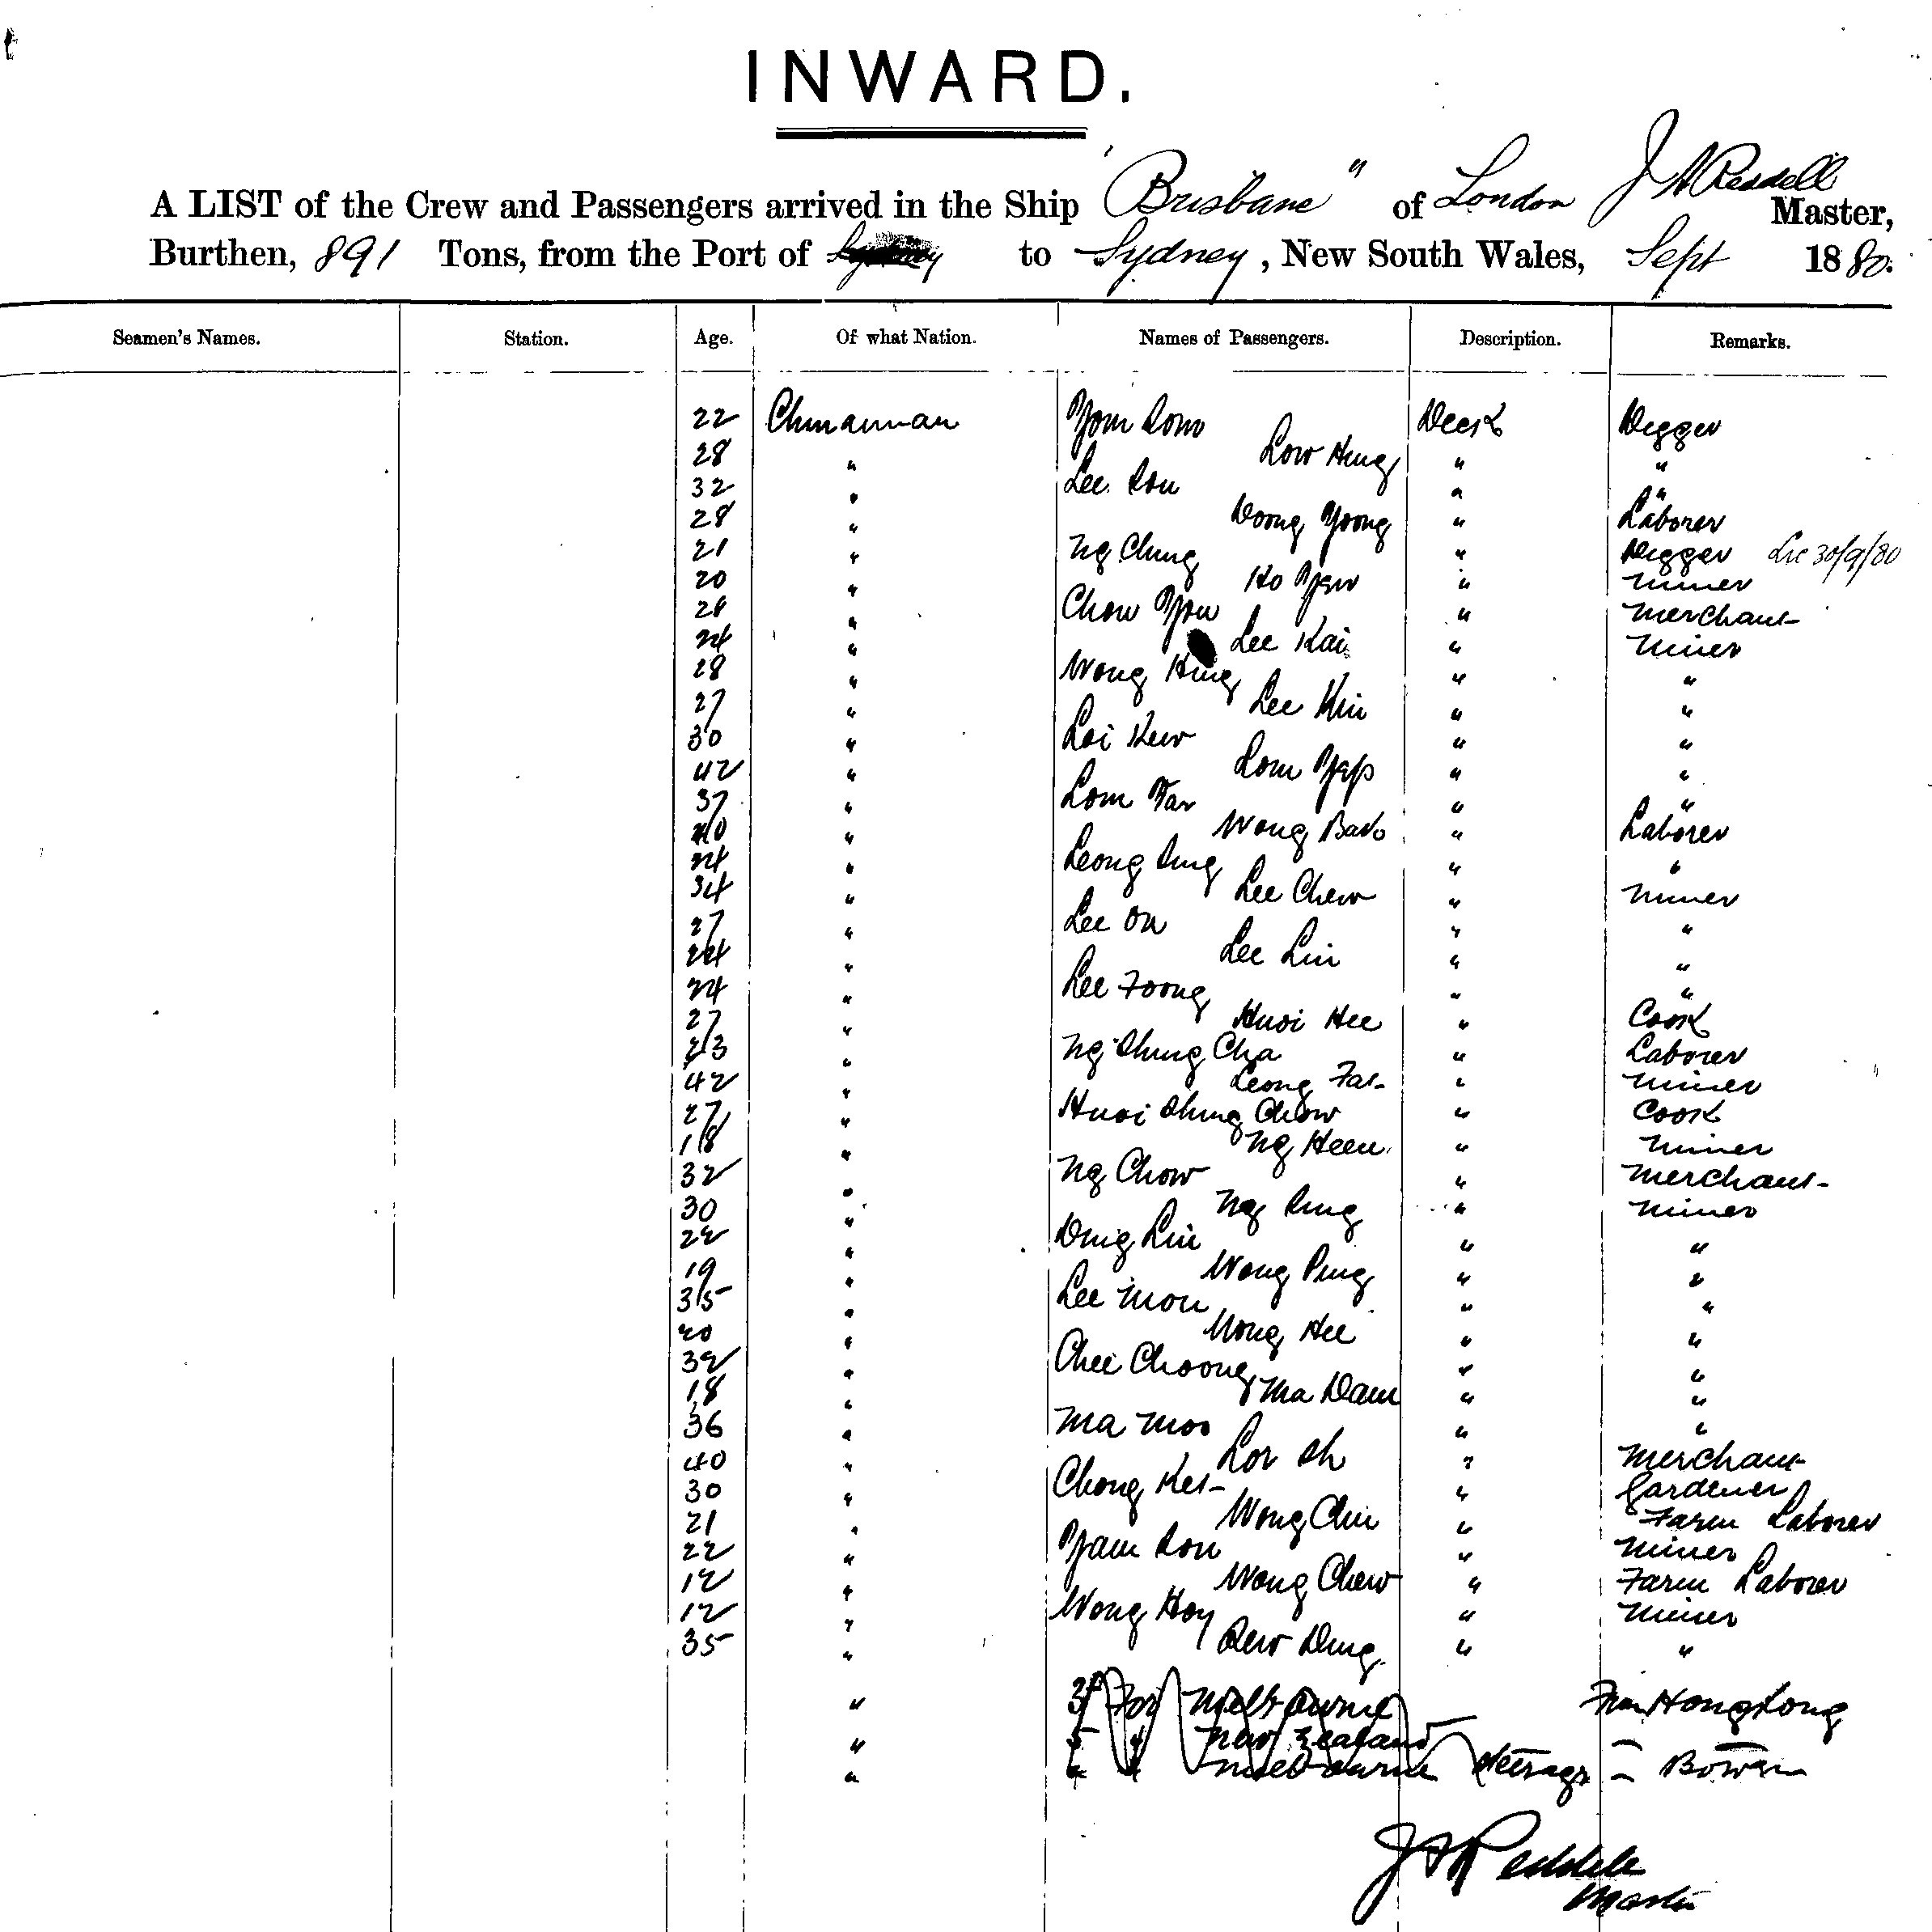 INWARD.
A LIST of the Crew and Passengers arrived in the Ship "Brisbane" of London J A Reddell Master,
Burthen, 891 Tons, from the Port of to Sydney, New South Wales, Sept 1880.
Seamen's Names. Station. Age. Of what Nation. Names of Passengers. Description. Remarks.
22 Chinaman Yom Dow Deck Digger
28 " Low Hing " "
32 " Lee Son " "
28 " Doong Yoong " Laborer
21 " Ng Ching " Digger 30/9/80
20 " Ho Yew " Miner
28 " Chow You " Merchant
24 " Lee Kai " Miner
28 " Wong Hing " "
27 " Lee Kin " "
30 " Loi Kew " "
42 " Lom Yap " "
37 " Lom Far " "
40 " Wong " Laborer
24 " Leong Sing " "
34 " Lee Chew " Miner
27 " Lee On " "
24 " Lee Lin " "
24 " Lee Foong " "
27 " Huoi Hee " Cook
23 " Ng Shing Cha " Laborer
42 " Leong Fat " Miner
27 " Huoi Shing Chow " Cook
18 " Ng Heen " Miner
32 " Ng Chow " Merchant
30 " Ng Sing " Miner
22 " Ding Lin " "
19 " Wong Ping " "
35 " Lee Mon " "
20 " Wong Hee " "
32 " Chee Choong " "
18 " Ma Dam " "
36 " Ma Moo " "
40 " Lor Sh " Merchant
30 " Chong Ket " Gardener
21 " Wong Chin " Farm Laborer
22 " Yam Son " Miner
12 " Wong Chew " Farm Laborer
12 " Wong Hoy " Miner
35 " Sew Ding " "
" 3 For Melbourne From Hong Kong
" 5 " New Zealand
" " Melbourne Steerage Bowen
J A Reddell
Master